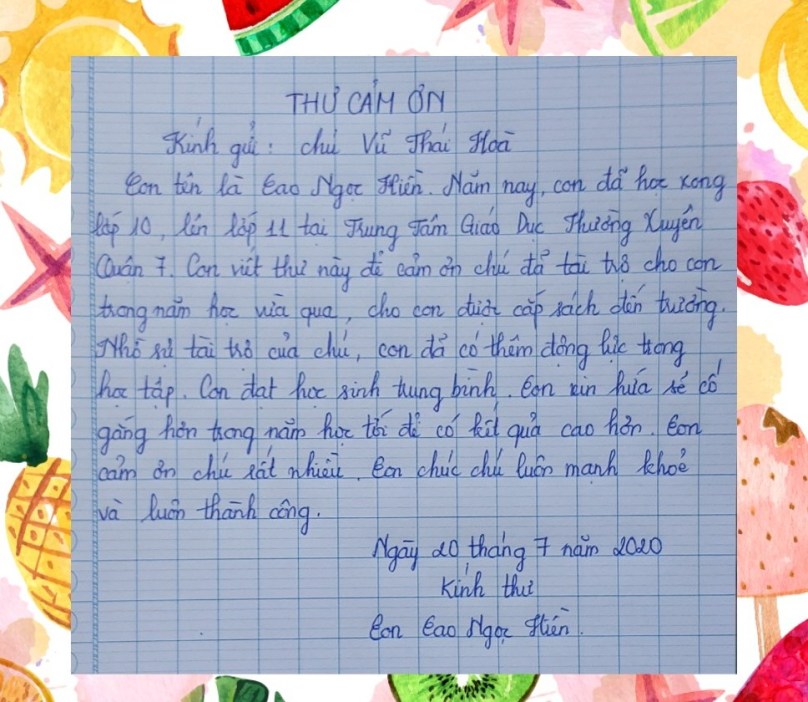 THƯ CẢM ƠN
Kính gửi : chú Vũ Thái Hoà
Con tên là Cao Ngọc Hiền. Năm nay, con đã học xong
lớp 10, lên lớp 11 tại Trung Tâm Giáo Dục Thường Xuyên
Quận 7. Con viết thư này để cảm ơn chú đã tài trợ cho con
trong năm học vừa qua, cho con được cắp sách đến trường.
Nhờ sự tài trợ của chú, con đã có thêm động lực trong
học tập. Con đạt học sinh trung bình. Con xin hứa sẽ cố
gắng hơn trong năm học tới để có kết quả cao hơn. Con
cảm ơn chú rất nhiều. Con chúc chú luôn mạnh khoẻ
và luôn thành công.
Ngày 20 tháng 7 năm 2020
Kính thư
Con Cao Ngọc Hiền.